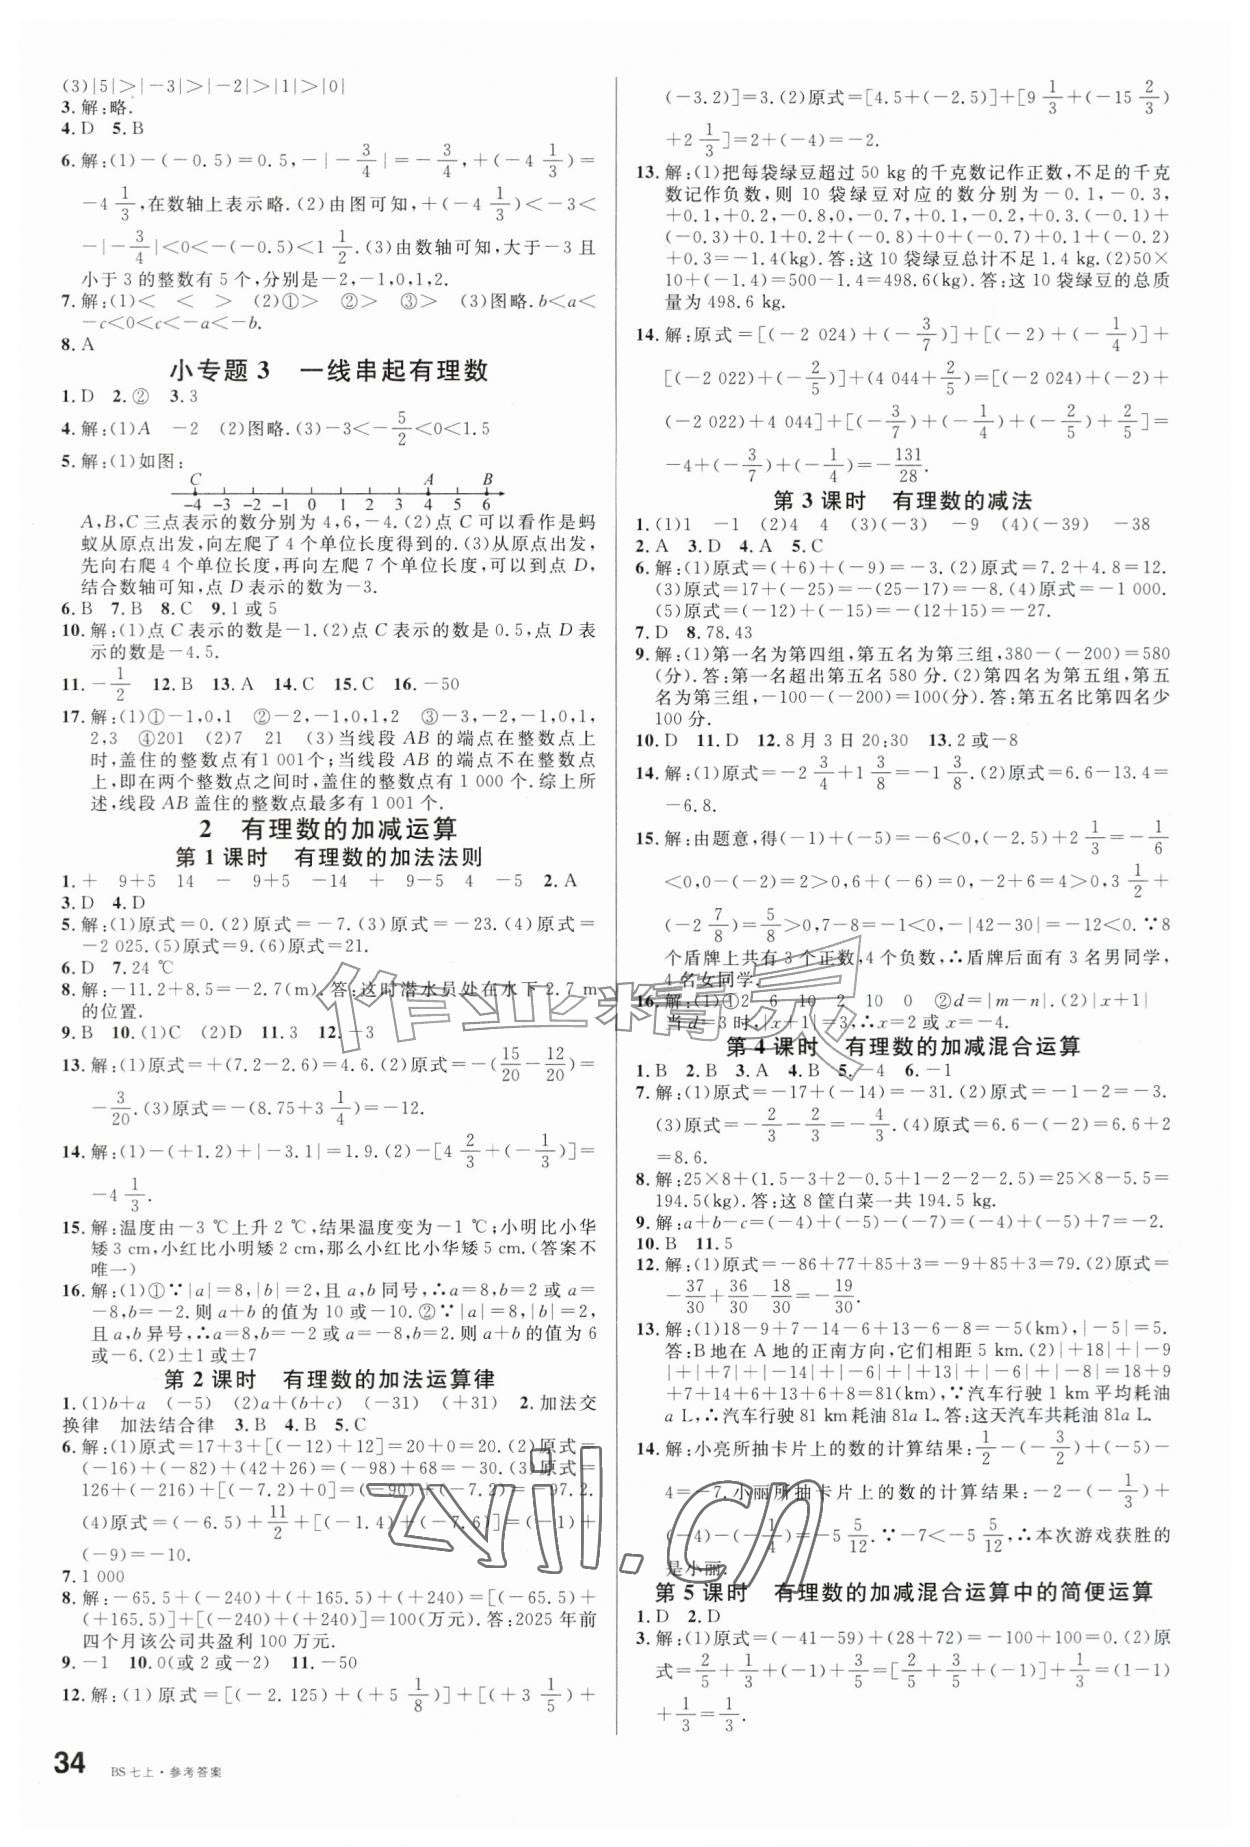 (3)|5|>|-3|>|-2|>|1|>|0|
3.解:略.
4.D 5.B
6.解:(1)-(-0.5)=0.5,-|-3/4|=-3/4,+(-4 1/3)=
-4 1/3,在数轴上表示略.(2)由图可知,+(-4 1/3)<-3<
-|-3/4|<0<-(-0.5)<1 1/2.(3)由数轴可知,大于-3且
小于3的整数有5个,分别是-2,-1,0,1,2.
7.解:(1)< < > (2)①> ②> ③> (3)图略.b<a<
-c<0<c<-a<-b.
8.A
小专题3 一线串起有理数
1.D 2.② 3.3
4.解:(1)A -2 (2)图略.(3)-3<-5/2<0<1.5
5.解:(1)如图:
C A B
-4 -3 -2 -1 0 1 2 3 4 5 6
A,B,C三点表示的数分别为4,6,-4.(2)点C可以看作是蚂
蚁从原点出发,向左爬了4个单位长度得到的.(3)从原点出发,
先向右爬4个单位长度,再向左爬7个单位长度,可以到点D,
结合数轴可知,点D表示的数为-3.
6.B 7.B 8.C 9.1或5
10.解:(1)点C表示的数是-1.(2)点C表示的数是0.5,点D表
示的数是-4.5.
11.-1/2 12.B 13.A 14.C 15.C 16.-50
17.解:(1)①-1,0,1 ②-2,-1,0,1,2 ③-3,-2,-1,0,1,
2,3 ④201 (2)7 21 (3)当线段AB的端点在整数点上
时,盖住的整数点有1 001个;当线段AB的端点不在整数点
上,即在两个整数点之间时,盖住的整数点有1 000个.综上所
述,线段AB盖住的整数点最多有1 001个.
2 有理数的加减运算
第1课时 有理数的加法法则
1.+ 9+5 14 - 9+5 -14 + 9-5 4 -5 2.A
3.D 4.D
5.解:(1)原式=0.(2)原式=-7.(3)原式=-23.(4)原式=
-2 025.(5)原式=9.(6)原式=21.
6.D 7.24 ℃
8.解:-11.2+8.5=-2.7(m).答:这时潜水员处在水下2.7 m
的位置.
9.B 10.(1)C (2)D 11.3 12.-3
13.解:(1)原式=+(7.2-2.6)=4.6.(2)原式=-(15/20-12/20)=
-3/20.(3)原式=-(8.75+3 1/4)=-12.
14.解:(1)-(+1.2)+|-3.1|=1.9.(2)-[4 2/3+(-1/3)]=
-4 1/3.
15.解:温度由-3 ℃上升2 ℃,结果温度变为-1 ℃;小明比小华
矮3 cm,小红比小明矮2 cm,那么小红比小华矮5 cm.(答案不
唯一)
16.解:(1)①∵|a|=8,|b|=2,且a,b同号,∴a=8,b=2或a=
-8,b=-2.则a+b的值为10或-10.②∵|a|=8,|b|=2,
且a,b异号,∴a=8,b=-2或a=-8,b=2.则a+b的值为6
或-6.(2)±1或±7
第2课时 有理数的加法运算律
1.(1)b+a (-5) (2)a+(b+c) (-31) (+31) 2.加法交
换律 加法结合律 3.B 4.B 5.C
6.解:(1)原式=17+3+[(-12)+12]=20+0=20.(2)原式=
(-16)+(-82)+(42+26)=(-98)+68=-30.(3)原式=
126+(-216)+[(-7.2)+0]=(-90)+(-7.2)=-97.2.
(4)原式=(-6.5)+11/2+[(-1.4)+(-7.6)]=(-1)+
(-9)=-10.
7.1 000
8.解:-65.5+(-240)+(+165.5)+(+240)=[(-65.5)+
(+165.5)]+[(-240)+(+240)]=100(万元).答:2025年前
四个月该公司共盈利100万元.
9.-1 10.0(或2或-2) 11.-50
12.解:(1)原式=[(-2.125)+(+5 1/8)]+[(+3 1/5)+
(-3.2)]=3.(2)原式=[4.5+(-2.5)]+[9 1/3+(-15 2/3)
+2 1/3]=2+(-4)=-2.
13.解:(1)把每袋绿豆超过50 kg的千克数记作正数,不足的千克
数记作负数,则10袋绿豆对应的数分别为-0.1,-0.3,
+0.1,+0.2,-0.8,0,-0.7,+0.1,-0.2,+0.3.(-0.1)+
(-0.3)+0.1+0.2+(-0.8)+0+(-0.7)+0.1+(-0.2)
+0.3=-1.4(kg).答:这10袋绿豆总计不足1.4 kg.(2)50×
10+(-1.4)=500-1.4=498.6(kg).答:这10袋绿豆的总质
量为498.6 kg.
14.解:原式=[(-2 024)+(-3/7)]+[(-2)+(-1/4)]+
[(-2 022)+(-2/5)]+(4 044+2/5)=[(-2 024)+(-2)+
(-2 022)+4 044]+[(-3/7)+(-1/4)+(-2/5)+2/5]=
-4+(-3/7)+(-1/4)=-131/28.
第3课时 有理数的减法
1.(1)1 -1 (2)4 4 (3)(-3) -9 (4)(-39) -38
2.A 3.D 4.A 5.C
6.解:(1)原式=(+6)+(-9)=-3.(2)原式=7.2+4.8=12.
(3)原式=17+(-25)=-(25-17)=-8.(4)原式=-1 000.
(5)原式=(-12)+(-15)=-(12+15)=-27.
7.D 8.78.43
9.解:(1)第一名为第四组,第五名为第三组,380-(-200)=580
(分).答:第一名超出第五名580分.(2)第四名为第五组,第五
名为第三组,-100-(-200)=100(分).答:第五名比第四名少
100分.
10.D 11.D 12.8月3日20:30 13.2或-8
14.解:(1)原式=-2 3/4+1 3/8=-1 3/8.(2)原式=6.6-13.4=
-6.8.
15.解:由题意,得(-1)+(-5)=-6<0,(-2.5)+2 1/3=-1/6
<0,0-(-2)=2>0,6+(-6)=0,-2+6=4>0,3 1/2+
(-2 7/8)=5/8>0,7-8=-1<0,-|42-30|=-12<0.∵8
个盾牌上共有3个正数,4个负数,∴盾牌后面有3名男同学,
4名女同学.
16.解:(1)①2 6 10 2 10 0 ②d=|m-n|.(2)|x+1|
当d=3时,|x+1|=3,∴x=2或x=-4.
第4课时 有理数的加减混合运算
1.B 2.B 3.A 4.B 5.-4 6.-1
7.解:(1)原式=-17+(-14)=-31.(2)原式=-1-2=-3.
(3)原式=-2/3-2/3=-4/3.(4)原式=6.6-(-2)=6.6+2
=8.6.
8.解:25×8+(1.5-3+2-0.5+1-2-2-2.5)=25×8-5.5=
194.5(kg).答:这8筐白菜一共194.5 kg.
9.解:a+b-c=(-4)+(-5)-(-7)=(-4)+(-5)+7=-2.
10.B 11.5
12.解:(1)原式=-86+77+85+3=-9+85+3=79.(2)原式=
-37/30+36/30-18/30=-19/30.
13.解:(1)18-9+7-14-6+13-6-8=-5(km),|-5|=5.
答:B地在A地的正南方向,它们相距5 km.(2)|+18|+|-9
|+|+7|+|-14|+|-6|+|+13|+|-6|+|-8|=18+9
+7+14+6+13+6+8=81(km),∵汽车行驶1 km平均耗油
a L,∴汽车行驶81 km耗油81a L.答:这天汽车共耗油81a L.
14.解:小亮所抽卡片上的数的计算结果:1/2-(-3/2)+(-5)-
4=-7.小丽所抽卡片上的数的计算结果:-2-(-1/3)+
(-4)-(-1/4)=-5 5/12.∵-7<-5 5/12,∴本次游戏获胜的
是小丽.
第5课时 有理数的加减混合运算中的简便运算
1.D 2.D
3.解:(1)原式=(-41-59)+(28+72)=-100+100=0.(2)原
式=2/5+1/3+3/5+(-1)=[2/5+3/5+(-1)]+1/3=(1-1)
+1/3=1/3.
作业精灵
zyjl.cn
34 BS七上·参考答案